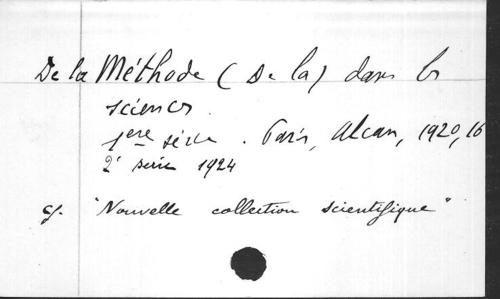 De la Méthode (De la) dans les
sciences.
1ere série. Paris, Alcan, 1920, 16
2e serie 1924
cf. "Nouvelle collection scientifique"